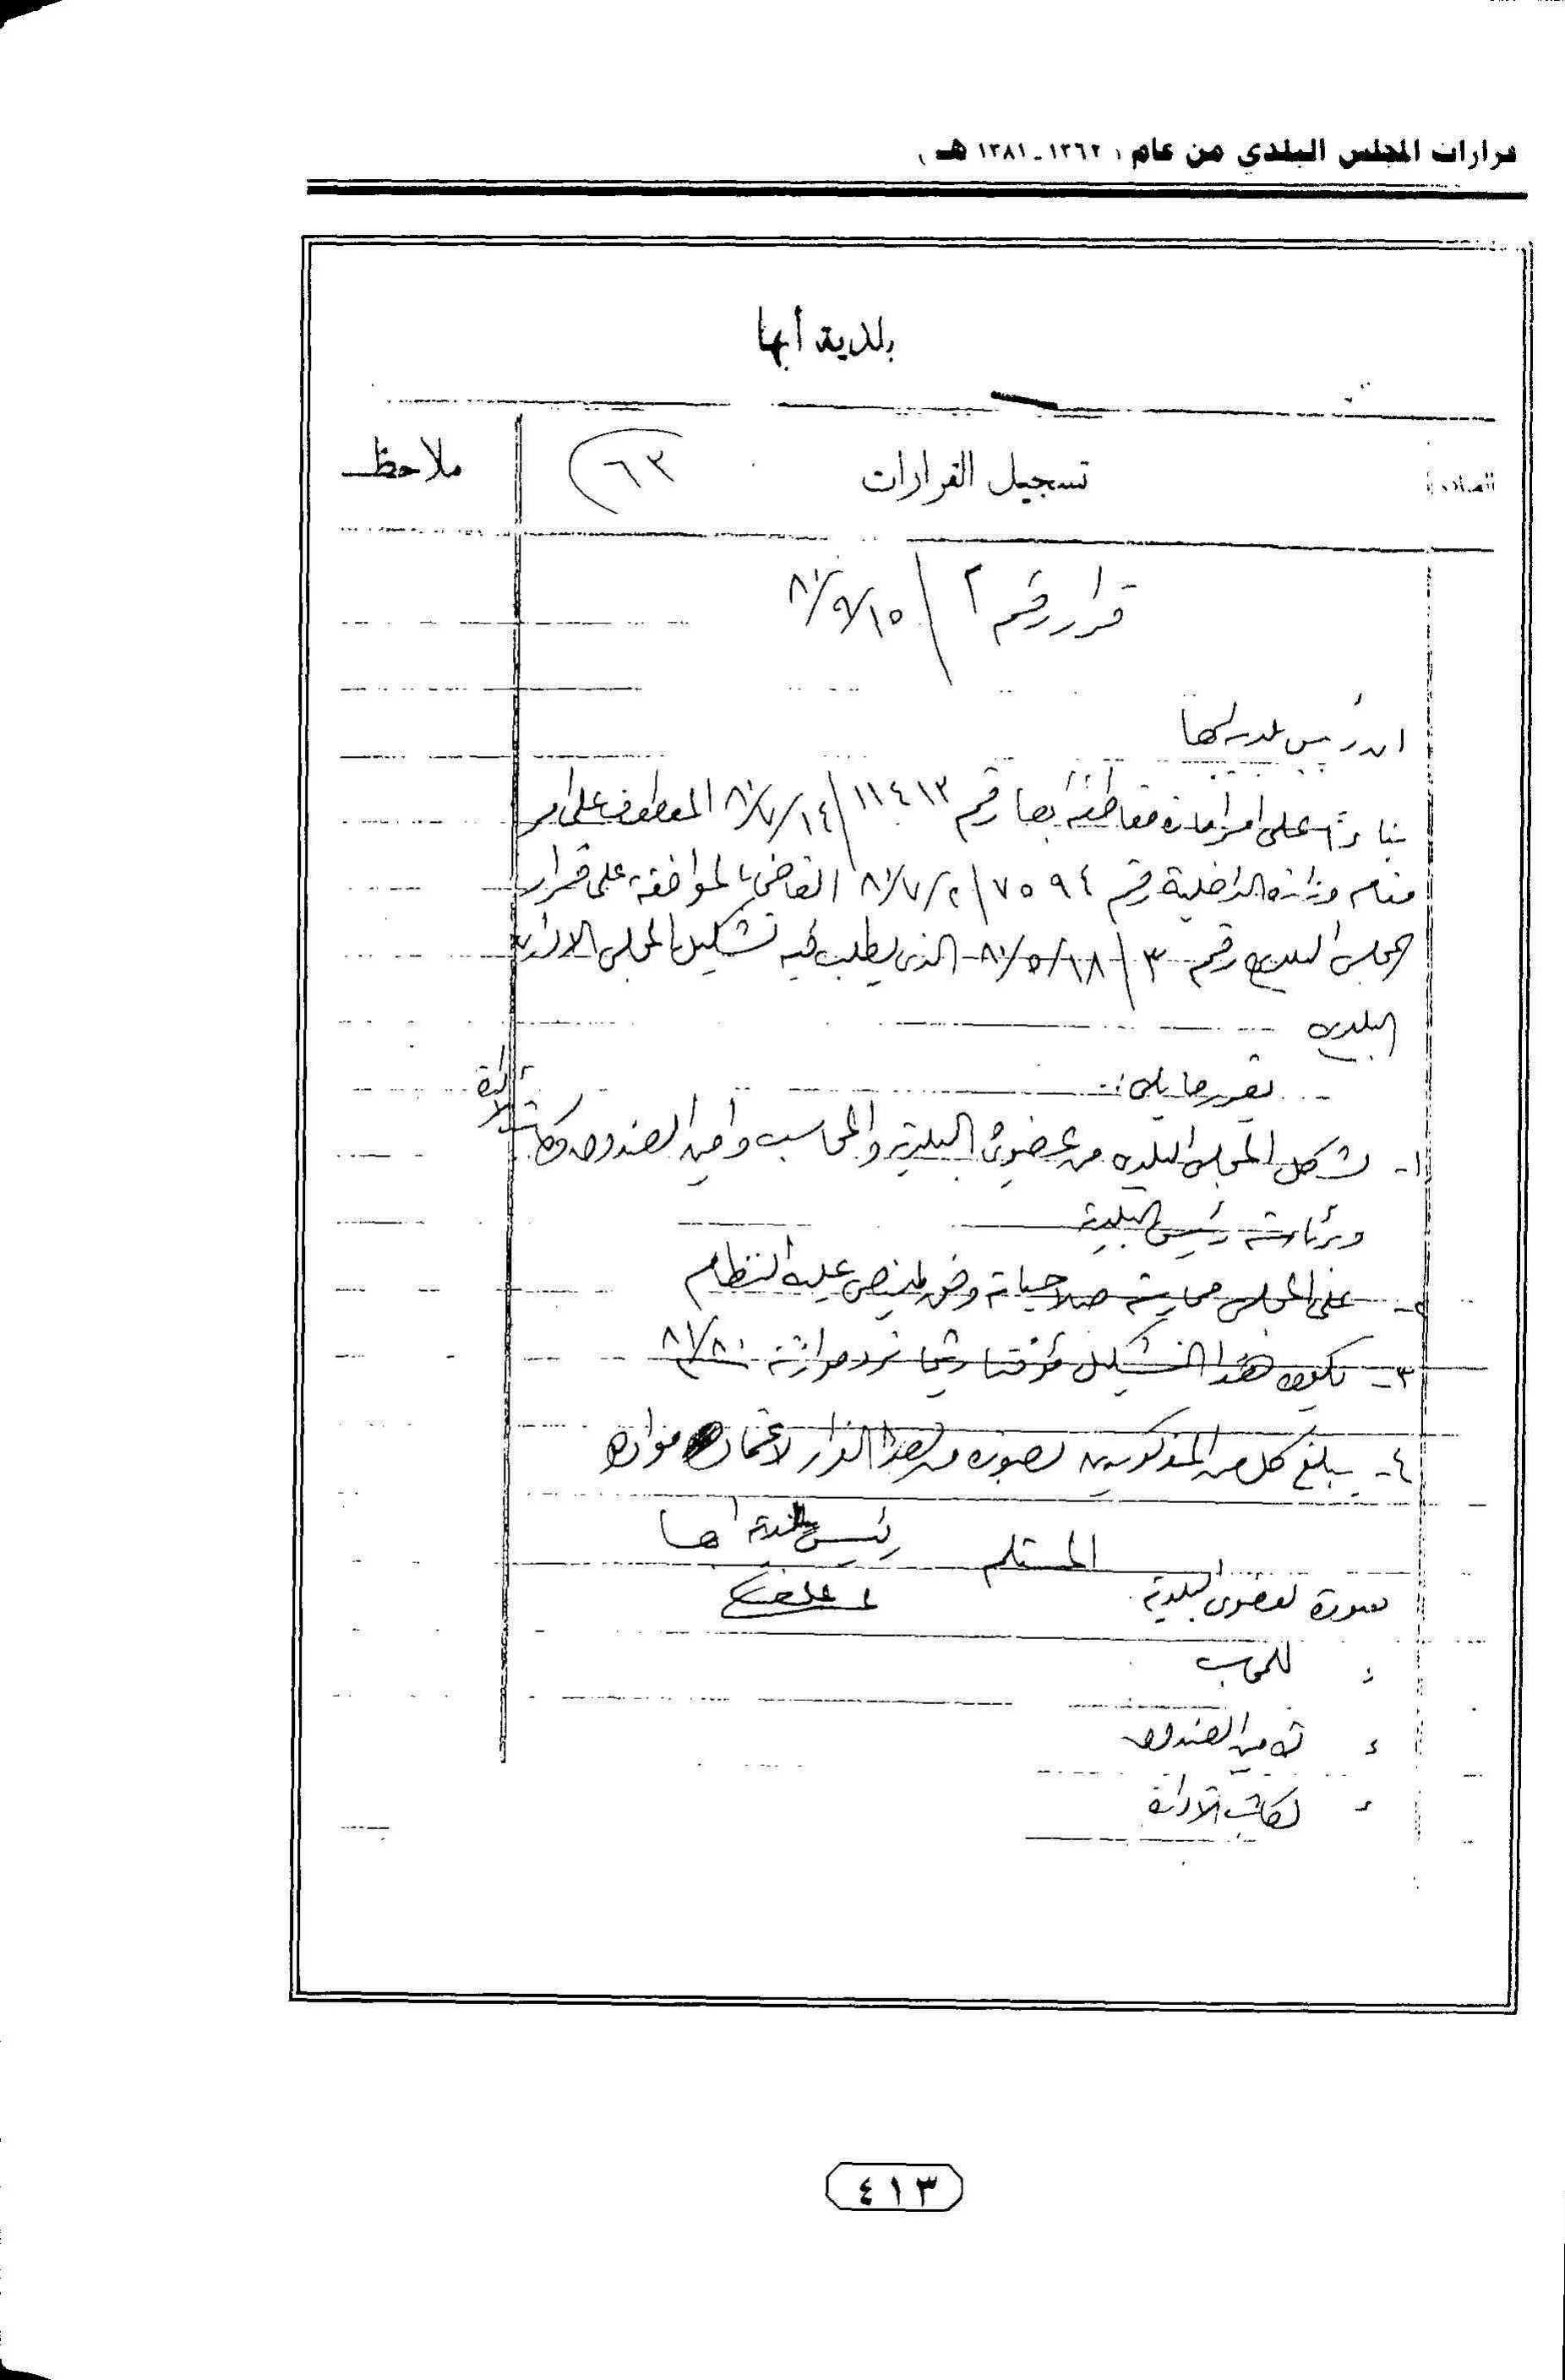 قرارات المجلس البلدي من عام ( ١٣٦٢ - ١٣٨١ هـ )
بلدية أبها
تسجيل القرارات ٦٣ ملاحظـ
قرار رقم ٢ / ١٥/٩/٨٠
ان رئيس بلدية ابها
بناءً على امر امارة مقاطعة ابها رقم ١١٤١٣ / ١٤/٧/٨٠ المعطوف على امر
مقام وزارة الداخلية رقم ٧٥٩٤ / ٢/٧/٨٠ القاضي بالموافقة على قرار
المجلس البلدي رقم ٣ / ١٨/٥/٨٠ الذي يطلب فيه تشكيل المجلس الاداري
البلدي
يقرر ما يلي :-
١- يشكل المجلس البلدي من عضوي البلدية والمحاسب وامين الصندوق وكاتب الادارة
وبرئاسة رئيس البلدية
٢- على المجلس ممارسة صلاحياته وفق ما ينص عليه النظام
٣- يكون هذا التشكيل مؤقتا ريثما ترد موازنة ٨٠/٨١
٤- يبلغ كل من المذكورين بصورة من هذا القرار لاعتماد مواده
المستلم رئيس بلدية ابها
صورة لعضوي البلدية
للمحاسب
لامين الصندوق
لكاتب الادارة
٤١٣